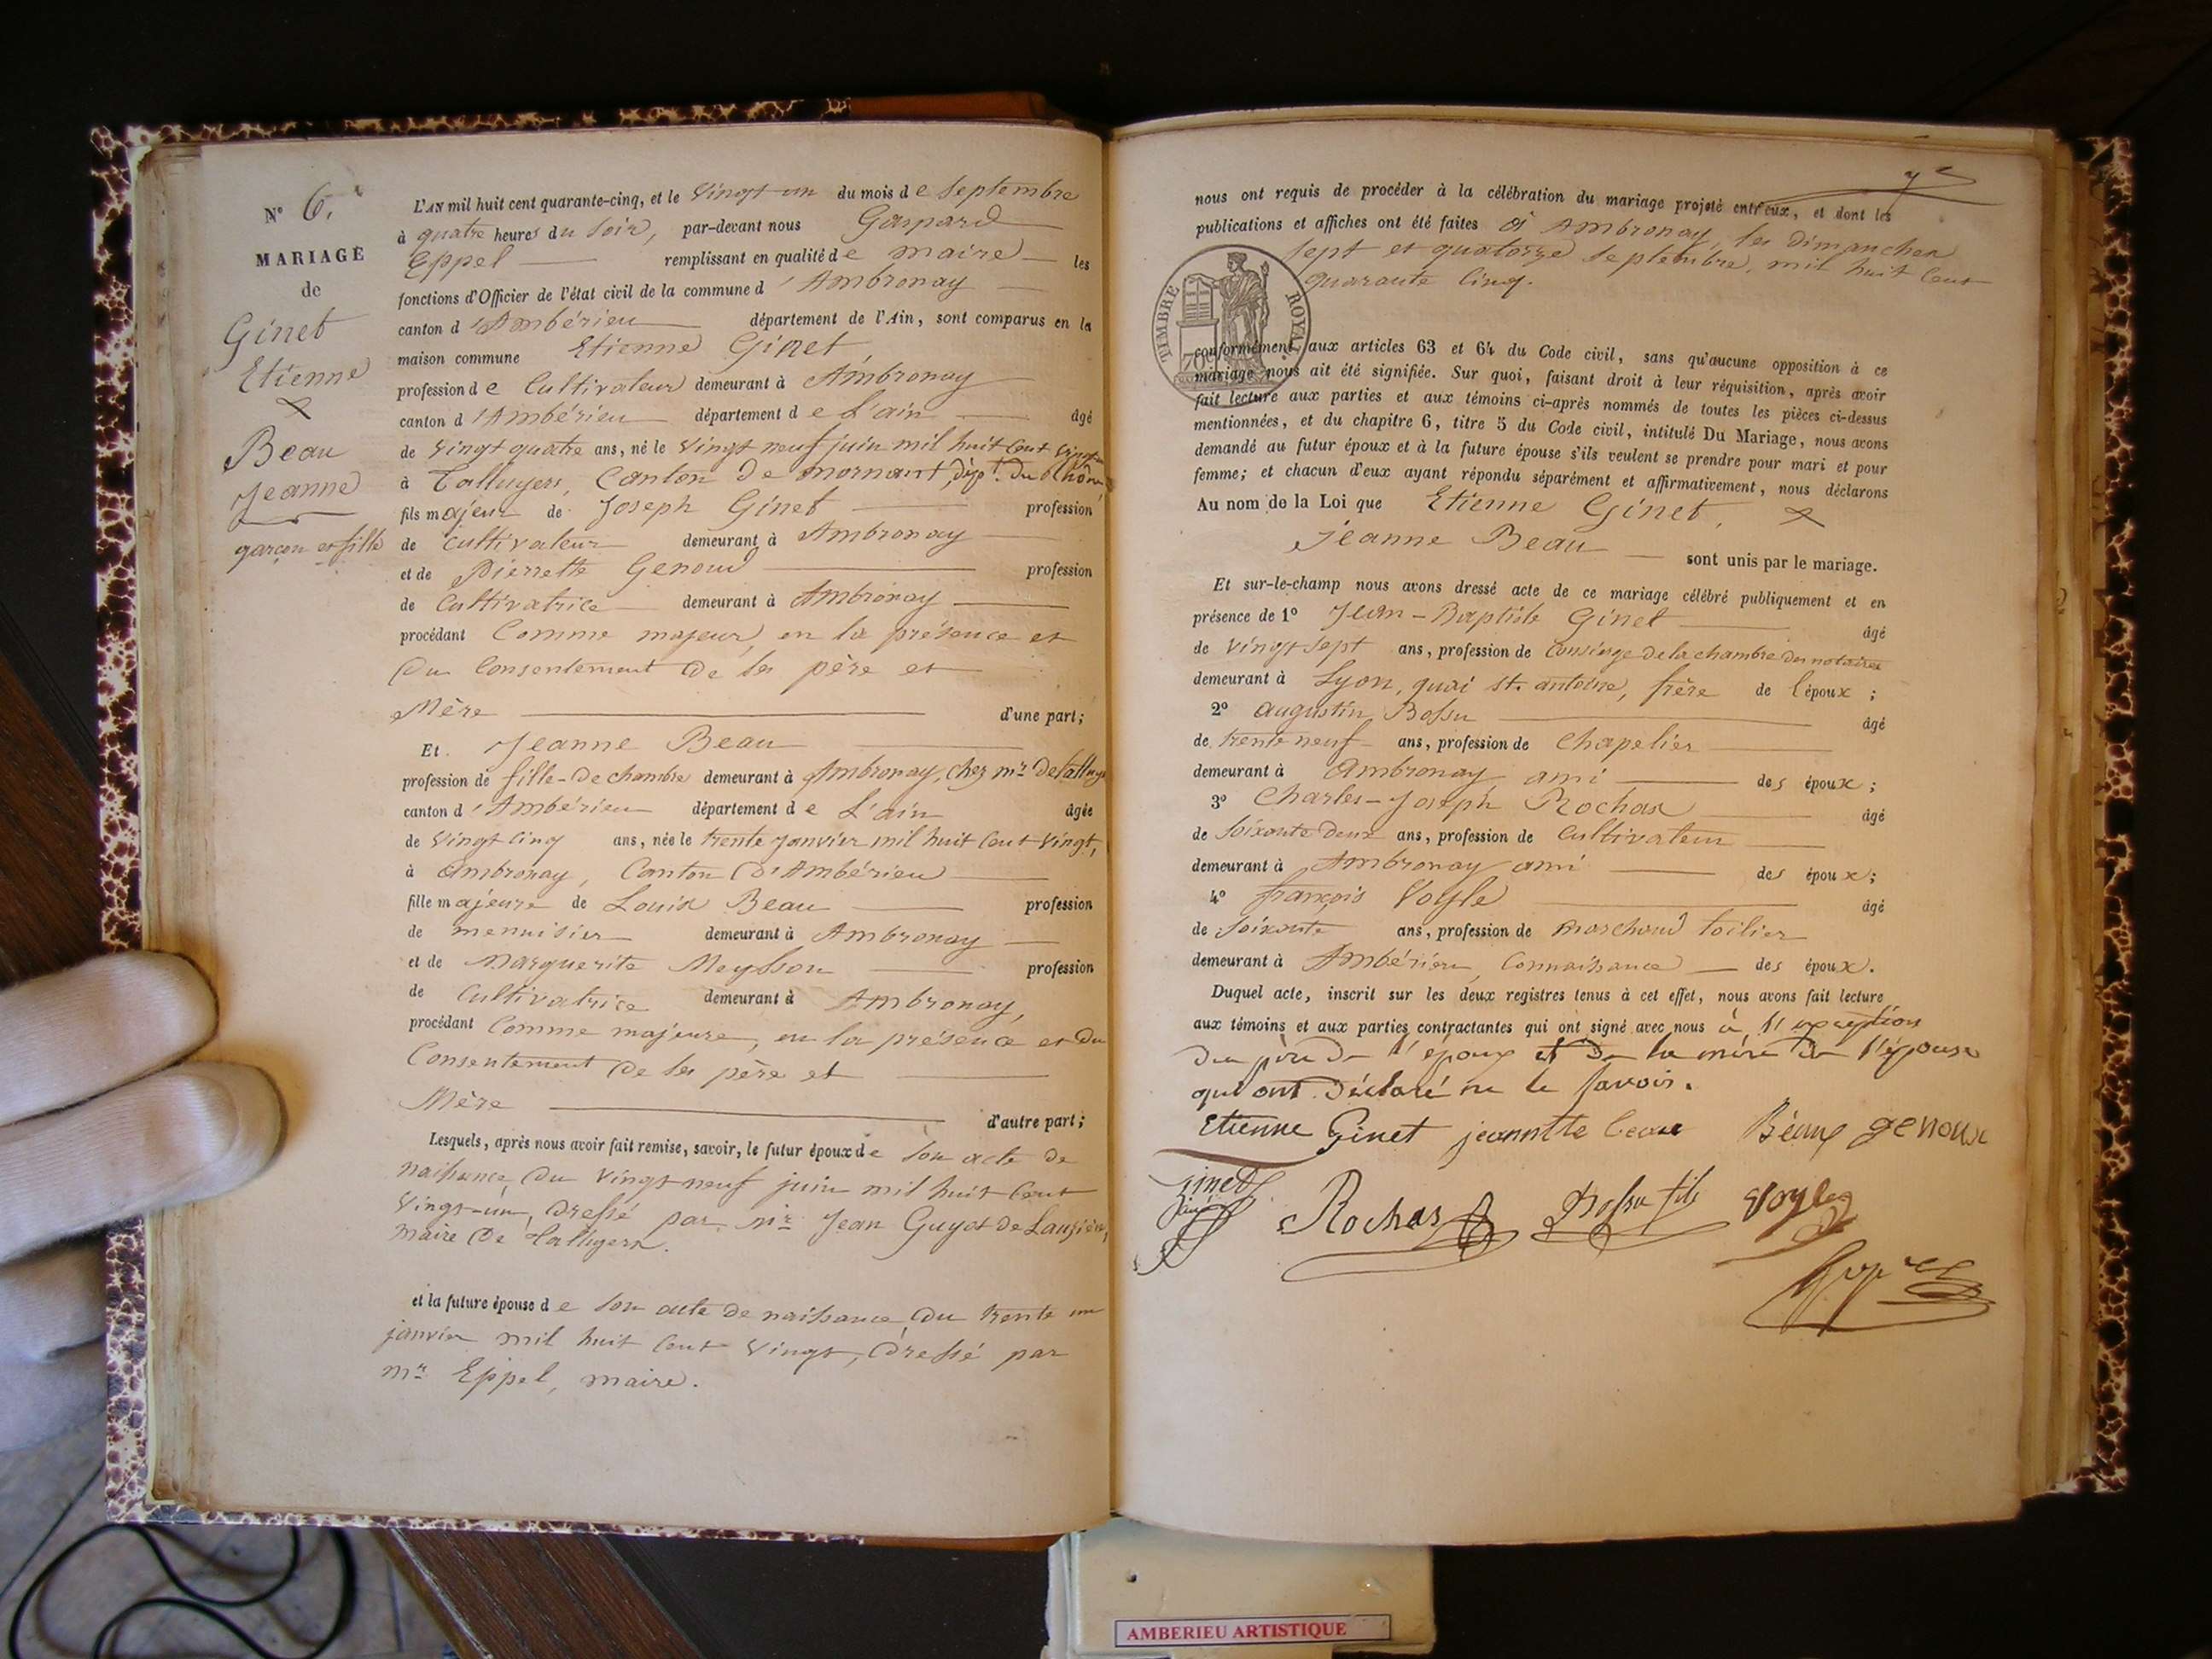 N° 6.
MARIAGE
de
Ginet
Etienne
&
Beau
Jeanne
garçon et fille
L'AN mil huit cent quarante-cinq, et le vingt un du mois de septembre
à quatre heures du soir, par-devant nous Gaspard
Eppel remplissant en qualité de maire les
fonctions d'Officier de l'état civil de la commune d'Ambronay
canton d'Ambérieu département de l'Ain, sont comparus en la
maison commune Etienne Ginet,
profession de Cultivateur demeurant à Ambronay
canton d'Ambérieu département de L'ain âgé
de vingt quatre ans, né le vingt neuf juin mil huit cent vingt un
à Talluyers, Canton de mornant, dépt. du Rhône,
fils majeur de Joseph Ginet profession
de cultivateur demeurant à Ambronay
et de Pierrette Genoud profession
de Cultivatrice demeurant à Ambronay
procédant Comme majeur, en la présence et
du Consentement de ses père et
Mère d'une part;
Et Jeanne Beau
profession de fille-de chambre demeurant à Ambronay, chez mr.
canton d'Ambérieu département de L'ain âgée
de vingt cinq ans, née le trente janvier mil huit cent vingt,
à Ambronay, Canton d'Ambérieu
fille majeure de Louis Beau profession
de menuisier demeurant à Ambronay
et de Marguerite Meysson profession
de Cultivatrice demeurant à Ambronay,
procédant Comme majeure, en la présence et du
Consentement de ses père et
Mère d'autre part;
Lesquels, après nous avoir fait remise, savoir, le futur époux de son acte de
naissance, du vingt neuf juin mil huit cent
vingt-un, dressé par mr. Jean Guyot de
maire de Talluyers.
et la future épouse de son acte de naissance, du trente un
janvier mil huit cent vingt, dressé par
mr. Eppel, maire.
nous ont requis de procéder à la célébration du mariage projeté entr'eux, et dont les
publications et affiches ont été faites à Ambronay, les dimanches
sept et quatorze septembre, mil huit cent
quarante cinq.
TIMBRE ROYAL.
70c
conformément aux articles 63 et 64 du Code civil, sans qu'aucune opposition à ce
mariage nous ait été signifiée. Sur quoi, faisant droit à leur réquisition, après avoir
fait lecture aux parties et aux témoins ci-après nommés de toutes les pièces ci-dessus
mentionnées, et du chapitre 6, titre 5 du Code civil, intitulé Du Mariage, nous avons
demandé au futur époux et à la future épouse s'ils veulent se prendre pour mari et pour
femme; et chacun d'eux ayant répondu séparément et affirmativement, nous déclarons
Au nom de la Loi que Etienne Ginet, &
Jeanne Beau sont unis par le mariage.
Et sur-le-champ nous avons dressé acte de ce mariage célébré publiquement et en
présence de 1° Jean-Baptiste Ginet âgé
de vingt sept ans, profession de Concierge de la chambre des notaires
demeurant à Lyon, quai st. antoine, frère de l'époux;
2° augustin Bossu âgé
de trente neuf ans, profession de Chapelier
demeurant à Ambronay ami des époux;
3° Charles-Joseph Rochas âgé
de soixante deux ans, profession de cultivateur
demeurant à Ambronay ami des époux;
4° françois Voyle âgé
de soixante ans, profession de marchand toilier
demeurant à Ambérieu, Connaissance des époux.
Duquel acte, inscrit sur les deux registres tenus à cet effet, nous avons fait lecture
aux témoins et aux parties contractantes qui ont signé avec nous à l'exception
du père de l'époux et de la mère de l'épouse
qui ont déclaré ne le savoir.
Etienne Ginet jeannette beau Béaux genoux
ginet
Rochas Bossu fils Voyle
Eppel
AMBERIEU ARTISTIQUE